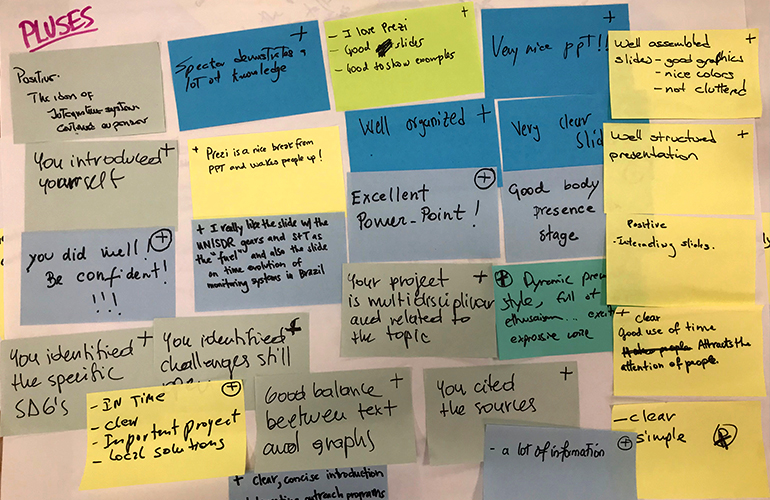 PLUSES
Positive.
The idea of
+
Speaker demonstrates a
lot of knowledge
+
- I love Prezi
- Good slides
- Good to show examples
+
Very nice ppt!!
+
Well assembled
slides - good graphics
- nice colors
- not cluttered
+
You introduced
yourself
+
+ Prezi is a nice break from
PPT and wakes people up!
Well organized
+
Very clear
Slid
Well structured
presentation
+
you did well!
Be confident!
!!!
+
+ I really like the slide w/ the
UNISDR gears and S+T as
the "fuel" and also the slide
on time evolution of
monitoring systems in Brazil
Excellent
Power-Point!
+
Good body
presence
stage
Positive
- Interesting slides.
You identified
the specific
SDG's
+
You identified
challenges still
+
Your project
is multidisciplinar
and related to
the topic
+
+ Dynamic pres
style, full of
ethusiasm... excit
expressive voice
+ clear
Good use of time
Attracts the
attention of people.
- IN TIME
- clear
- Important project
- Local solutions
+
Good balance
beetween text
and graphs
+
You cited
the sources
+
- clear
simple
+
- a lot of information
+
+ clear, concise introduction
outreach programs